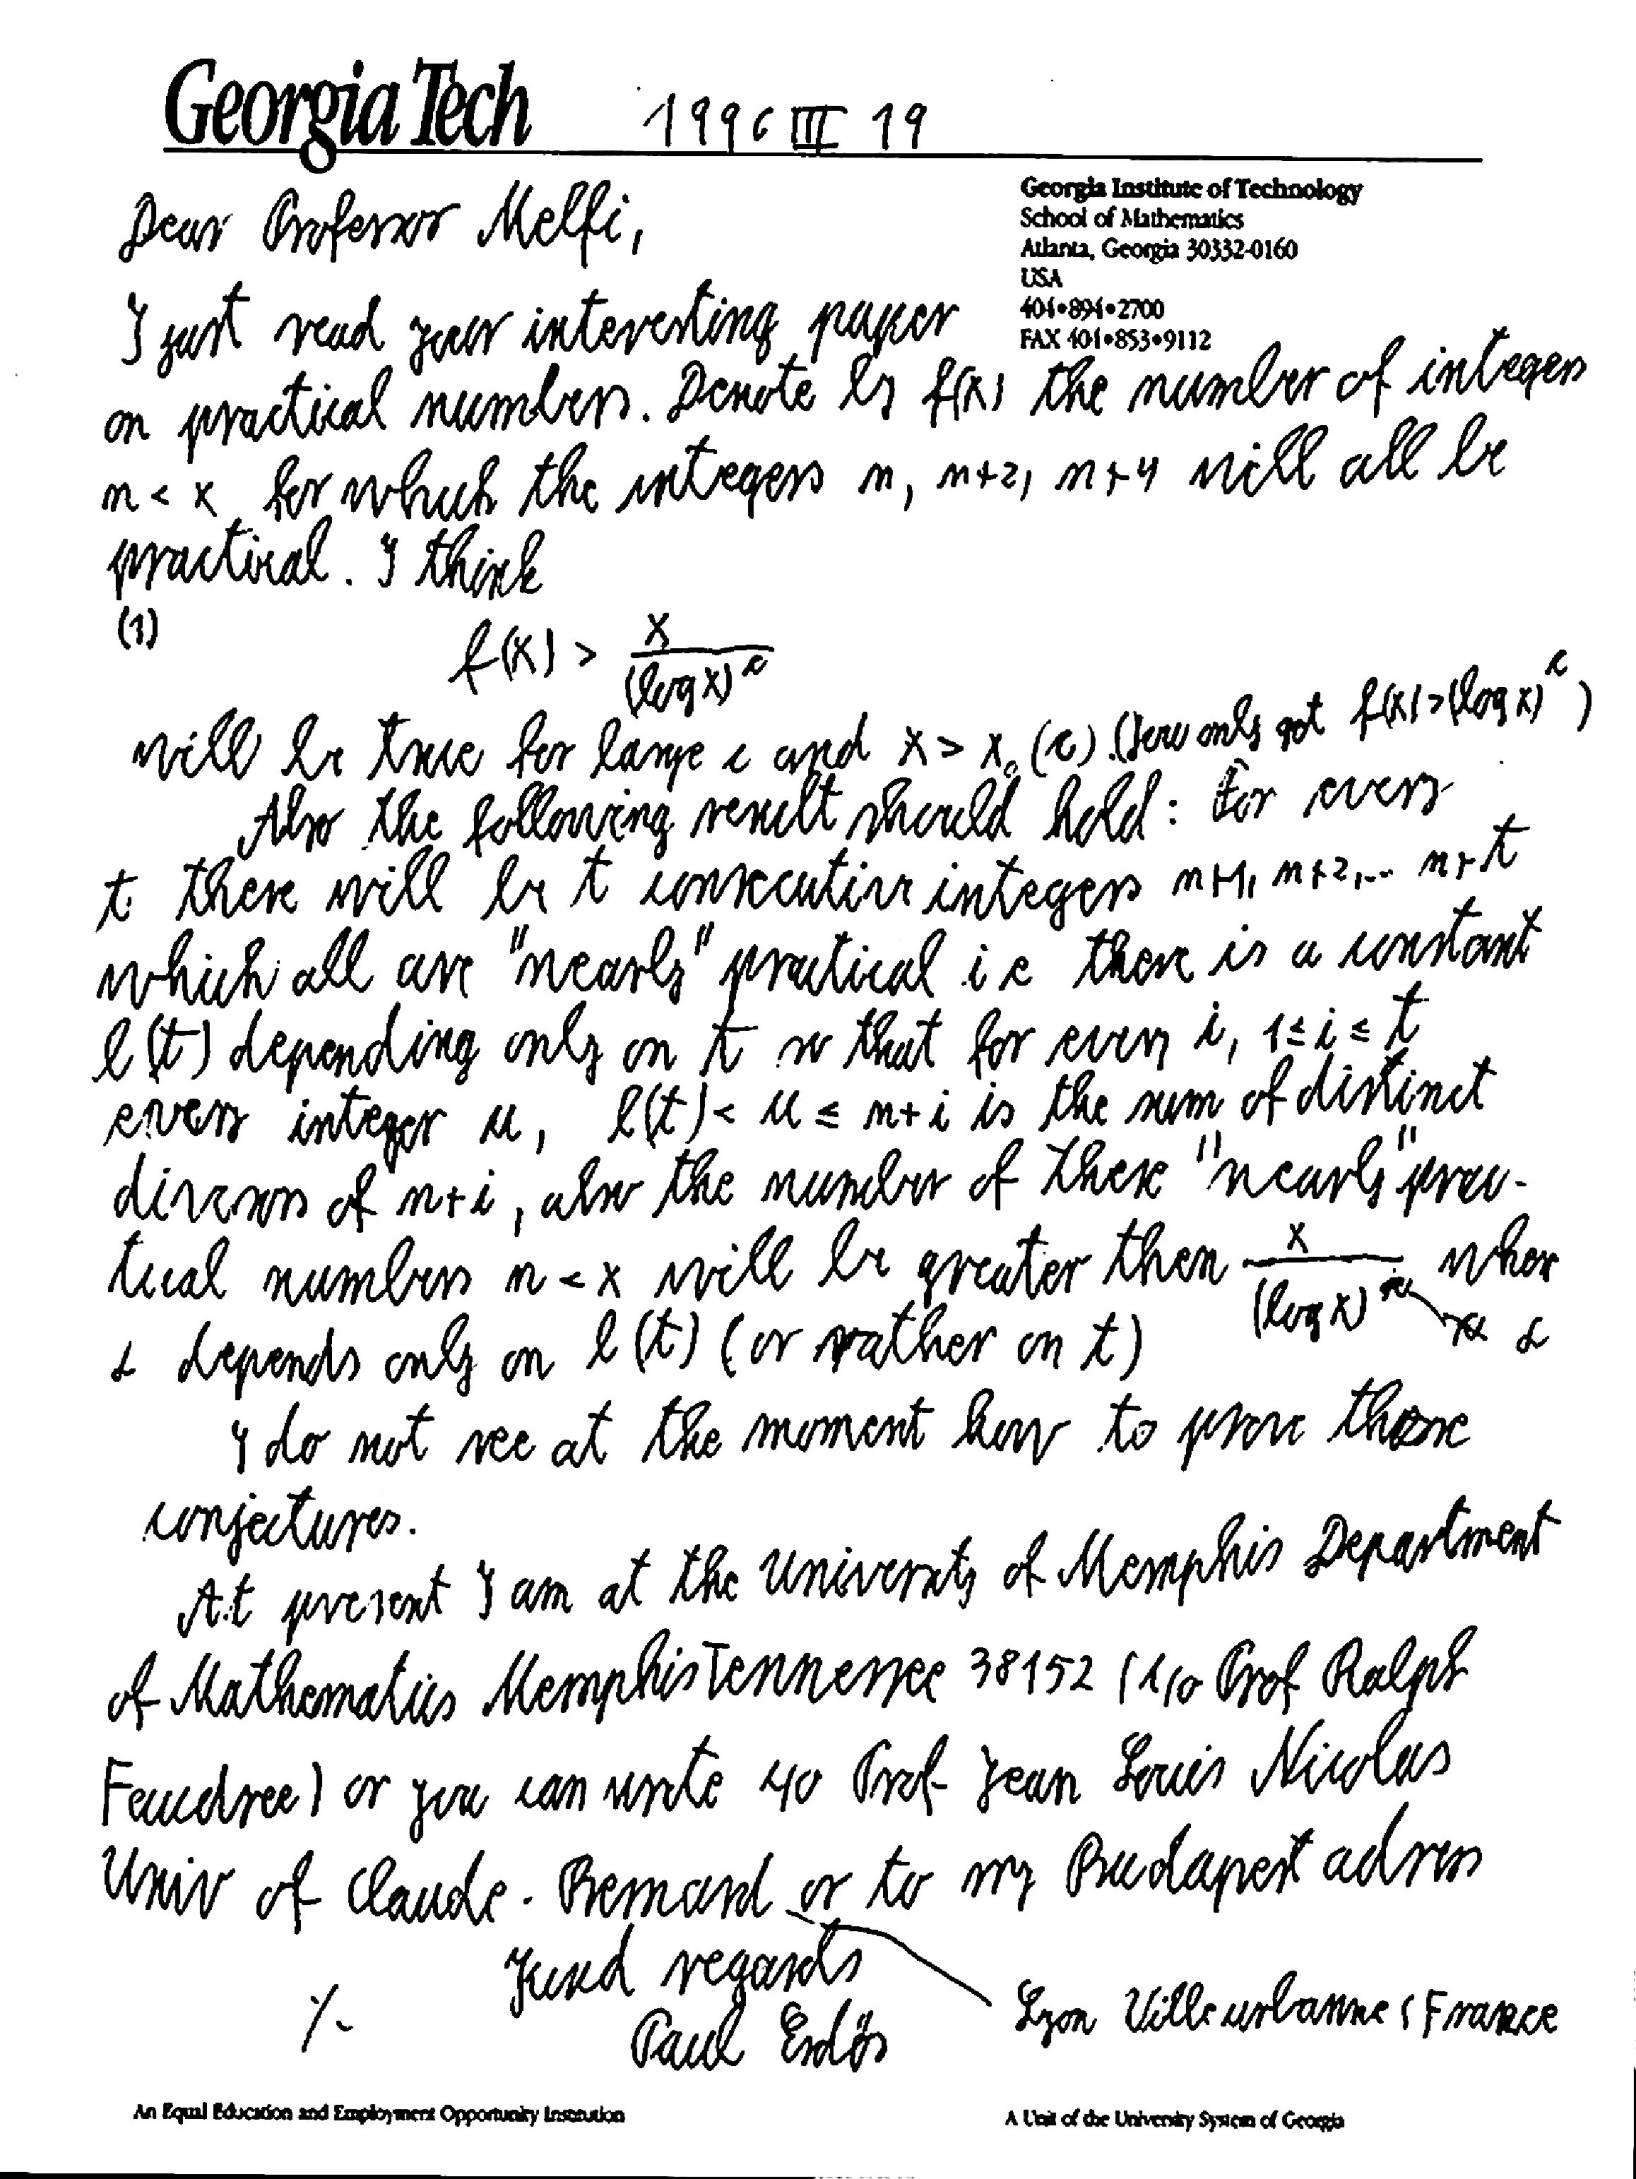 Georgia Tech 1996 III 19
Georgia Institute of Technology
School of Mathematics
Atlanta, Georgia 30332-0160
USA
404•894•2700
FAX 404•853•9112
Dear Professor Melfi,
I just read your interesting paper
on practical numbers. Denote by f(x) the number of integers
n < x for which the integers n, n+2, n+4 will all be
practical. I think
(1) f(x) > x/(log x)^c
will be true for large c and x > x₀(c). (You only got f(x) > (log x)^c)
Also the following result should hold: For every
t there will be t consecutive integers n+1, n+2,... n+t
which all are "nearly" practical i e there is a constant
l(t) depending only on t so that for every i, 1 ≤ i ≤ t
every integer u, l(t) < u ≤ n+i is the sum of distinct
divisors of n+i, also the number of these "nearly" prac-
tical numbers n < x will be greater then x/(log x)^α where
α depends only on l(t) (or rather on t)
I do not see at the moment how to prove these
conjectures.
At present I am at the University of Memphis Department
of Mathematics Memphis Tennessee 38152 (c/o Prof Ralph
Faudree) or you can write c/o Prof Jean Louis Nicolas
Univ of Claude-Bernard or to my Budapest adress
Lyon Villeurbanne (France
Kind regards
Paul Erdős
./-
An Equal Education and Employment Opportunity Institution
A Unit of the University System of Georgia